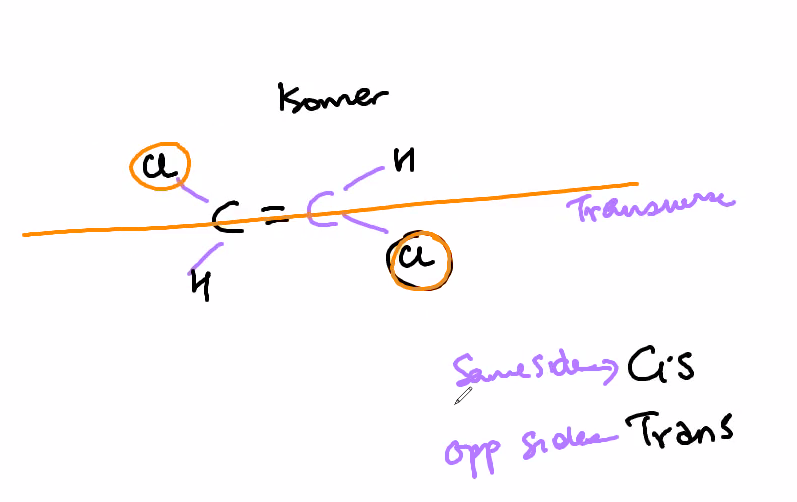 Isomer
Cl
H
C = C
Transverse
H
Cl
Same side → Cis
Opp side — Trans